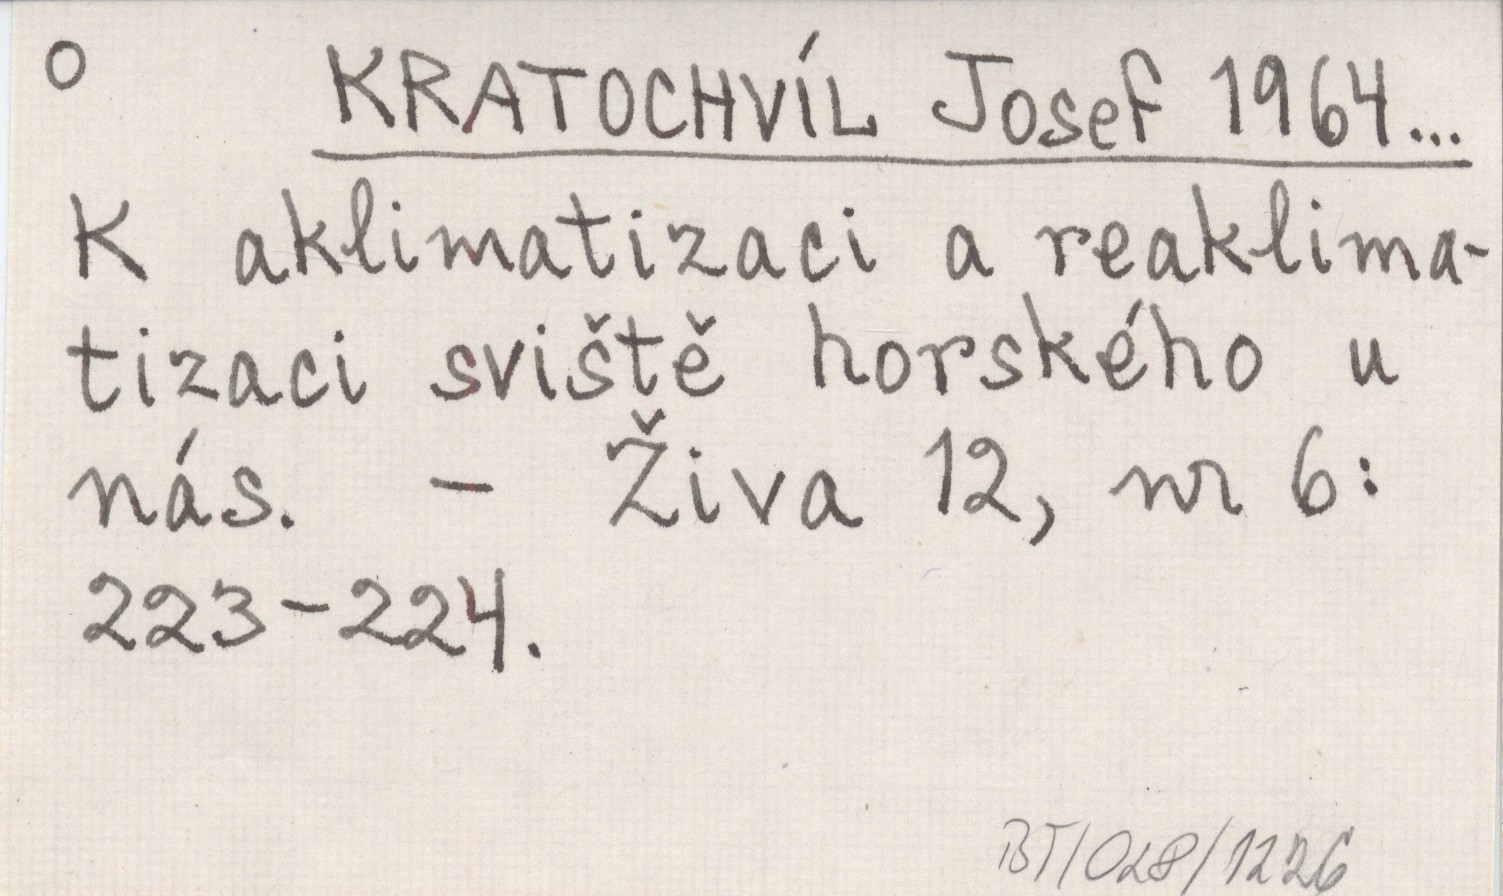 O
KRATOCHVÍL Josef 1964...
K aklimatizaci a reaklima-
tizaci sviště horského u
nás. - Živa 12, nr 6:
223-224.
BT/028/1226